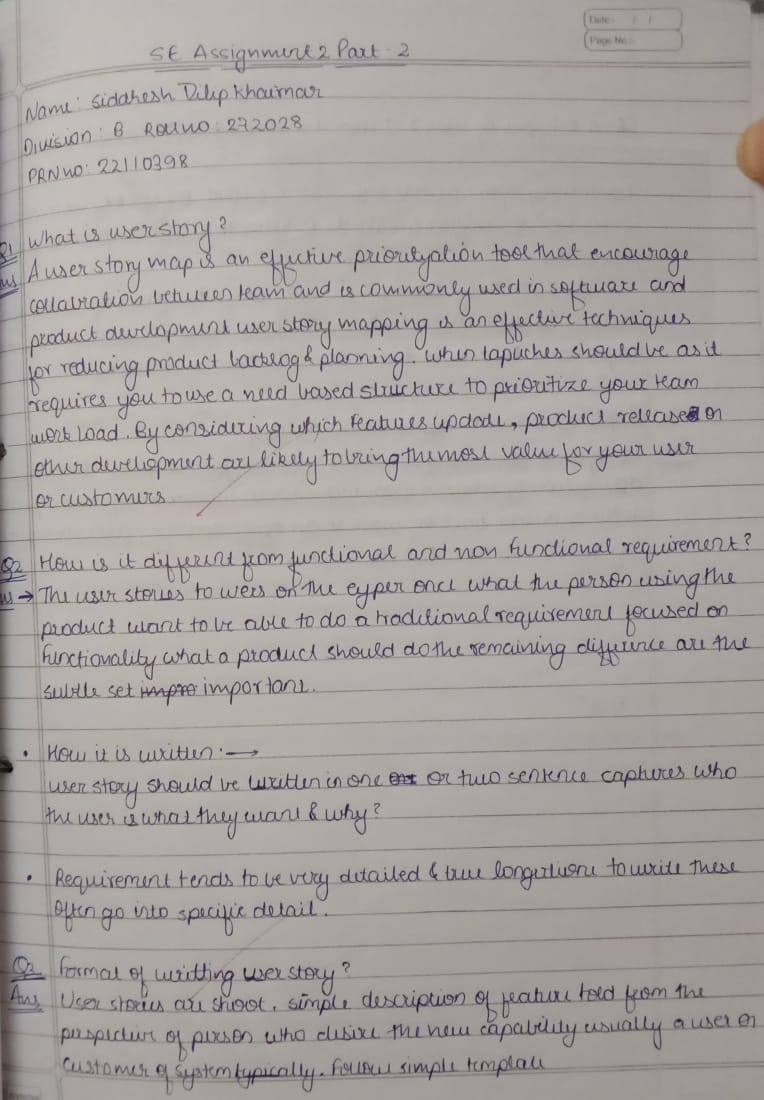 Date: / /
Page No:
SE Assignment 2 Part - 2
Name: Siddhesh Dilip Khairnar
Division: B Roll no: 272028
PRN no: 22110398
Q1 What is user story?
Ans A user story map is an effective tool that encourage
between team and is commonly used in software and
product development user story mapping is an effective techniques
for reducing product backlog & planning. When should be as it
requires you to use a need based structure to prioritize your team
work load. By considering which features update, product release or
other development are likely to bring the most value for your user
or customers.
Q2 How is it different from functional and non functional requirement?
Ans → The user stories to on the what the person using the
product want to be able to do a traditional requirement focused on
functionality what a product should do the remaining difference are the
subtle set important.
• How it is written :→
user story should be written in one or two sentence captures who
the user is what they want & why?
• Requirement tends to be very detailed & to write these
often go into specific detail.
Q3 Format of writting user story?
Ans User stories are shoot, simple description of feature told from the
of person who desire the new capability usually a user or
customer of system typically. Follow simple template